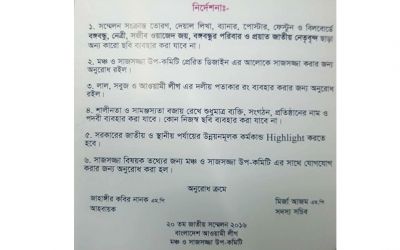 নির্দেশনাঃ-
১. সম্মেলন সংক্রান্ত তোরণ, দেয়াল লিখা, ব্যানার, পোস্টার, ফেস্টুন ও বিলবোর্ডে
বঙ্গবন্ধু, নেত্রী, সজীব ওয়াজেদ জয়, বঙ্গবন্ধুর পরিবার ও প্রয়াত জাতীয় নেতৃবৃন্দ ছাড়া
অন্য কারো ছবি ব্যবহার করা যাবে না।
২. মঞ্চ ও সাজসজ্জা উপ-কমিটি প্রেরিত ডিজাইন এর আলোকে সাজসজ্জা করার জন্য
অনুরোধ রইল।
৩. লাল, সবুজ ও আওয়ামী লীগ এর দলীয় পতাকার রং ব্যবহার করার জন্য অনুরোধ
রইল।
৪. শালীনতা ও সামঞ্জস্যতা বজায় রেখে শুধুমাত্র ব্যক্তি, সংগঠন, প্রতিষ্ঠানের নাম ও
পদবী ব্যবহার করা যাবে। কোন নিজস্ব ছবি ব্যবহার করা যাবে না।
৫. সরকারের জাতীয় ও স্থানীয় পর্যায়ের উন্নয়নমূলক কর্মকান্ড Highlight করতে
হবে।
৬. সাজসজ্জা বিষয়ক তথ্যের জন্য মঞ্চ ও সাজসজ্জা উপ-কমিটি এর সাথে যোগাযোগ
করার জন্য অনুরোধ করা হল।
অনুরোধ ক্রমে
জাহাঙ্গীর কবির নানক এম.পি
আহবায়ক
মির্জা আজম এম.পি
সদস্য সচিব
২০ তম জাতীয় সম্মেলন ২০১৬
বাংলাদেশ আওয়ামী লীগ
মঞ্চ ও সাজসজ্জা উপ-কমিটি